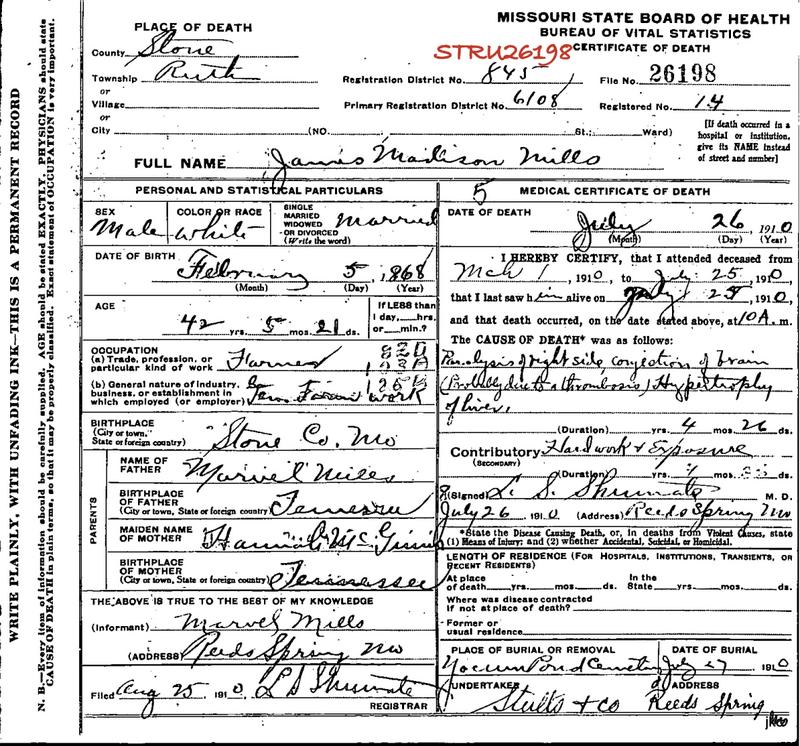 MISSOURI STATE BOARD OF HEALTH
BUREAU OF VITAL STATISTICS
CERTIFICATE OF DEATH
STRU26198
PLACE OF DEATH
County Stone
Township Ruth
or
Village
or
City (NO. St.; Ward)
Registration District No. 845 File No. 26198
Primary Registration District No. 6108 Registered No. 14
[If death occurred in a
hospital or institution,
give its NAME instead
of street and number]
FULL NAME James Madison Mills
PERSONAL AND STATISTICAL PARTICULARS
SEX
Male
COLOR OR RACE
White
SINGLE
MARRIED
WIDOWED
OR DIVORCED
(Write the word)
Married
DATE OF BIRTH
February 5, 1868
(Month) (Day) (Year)
AGE
42 yrs. 5 mos. 21 ds.
If LESS than
1 day, hrs.
or min.?
OCCUPATION
(a) Trade, profession, or
particular kind of work Farmer
(b) General nature of industry,
business, or establishment in
which employed (or employer) Farm work
BIRTHPLACE
(City or town,
State or foreign country) Stone Co. Mo
PARENTS
NAME OF
FATHER Marvel Mills
BIRTHPLACE
OF FATHER
(City or town, State or foreign country) Tennessee
MAIDEN NAME
OF MOTHER Hannah McGinnis
BIRTHPLACE
OF MOTHER
(City or town, State or foreign country) Tennessee
THE ABOVE IS TRUE TO THE BEST OF MY KNOWLEDGE
(Informant) Marvel Mills
(ADDRESS) Reeds Spring Mo
Filed Aug 25, 1910 L S Shumate
REGISTRAR
5 MEDICAL CERTIFICATE OF DEATH
DATE OF DEATH
July 26, 1910
(Month) (Day) (Year)
I HEREBY CERTIFY, that I attended deceased from
Mch 1, 1910, to July 25 1910,
that I last saw him alive on July 25, 1910,
and that death occurred, on the date stated above, at 10 A. m.
The CAUSE OF DEATH* was as follows:
Paralysis of right side, congestion of brain
(Probably due to a thrombosis) Hypertrophy
of liver,
(Duration) yrs. 4 mos. 26 ds.
Contributory Hard work & Exposure
(SECONDARY)
(Duration) yrs. mos. ds.
(Signed) L. S. Shumate M. D.
July 26, 1910. (Address) Reeds Spring Mo
*State the Disease Causing Death, or, in deaths from Violent Causes, state
(1) Means of Injury; and (2) whether Accidental, Suicidal, or Homicidal.
LENGTH OF RESIDENCE (FOR HOSPITALS, INSTITUTIONS, TRANSIENTS, OR
RECENT RESIDENTS)
At place
of death yrs. mos. ds.
In the
State yrs. mos. ds.
Where was disease contracted
if not at place of death?
Former or
usual residence
PLACE OF BURIAL OR REMOVAL
Yocum Pond Cemetery
DATE OF BURIAL
July 27 1910
UNDERTAKER
Stults & co
ADDRESS
Reeds Spring
WRITE PLAINLY, WITH UNFADING INK—THIS IS A PERMANENT RECORD
N. B.—Every item of information should be carefully supplied. AGE should be stated EXACTLY. PHYSICIANS should state
CAUSE OF DEATH in plain terms, so that it may be properly classified. Exact statement of OCCUPATION is very important.